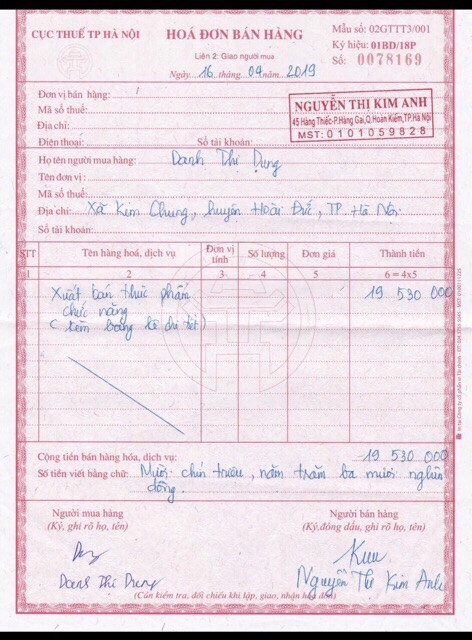 CỤC THUẾ TP HÀ NỘI
HOÁ ĐƠN BÁN HÀNG
Mẫu số: 02GTTT3/001
Liên 2: Giao người mua
Ký hiệu: 01BD/18P
Ngày 16 tháng 04 năm 2019
Số: 0078169
Đơn vị bán hàng:
Mã số thuế:
Địa chỉ:
Điện thoại: Số tài khoản:
NGUYỄN THỊ KIM ANH
45 Hàng Thiếc-P.Hàng Gai,Q.Hoàn Kiếm,TP.Hà Nội
MST: 0101059828
Họ tên người mua hàng: Doanh Thị Dung
Tên đơn vị:
Mã số thuế:
Địa chỉ: Xã Kim Chung, huyện Hoài Đức, TP. Hà Nội
Số tài khoản:
STT Tên hàng hoá, dịch vụ Đơn vị tính Số lượng Đơn giá Thành tiền
1 2 3 4 5 6 = 4x5
Xuất bán thực phẩm 19 530 000
chức năng
( kèm bảng kê chi tiết)
Cộng tiền bán hàng hóa, dịch vụ: 19 530 000
Số tiền viết bằng chữ: Mười chín triệu, năm trăm ba mươi nghìn
đồng.
Người mua hàng Người bán hàng
(Ký, ghi rõ họ, tên) (Ký,đóng dấu, ghi rõ họ, tên)
Nguyễn Thị Kim Anh
(Cần kiểm tra, đối chiếu khi lập, giao, nhận hoá đơn)